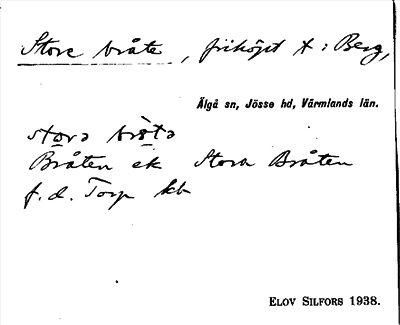 Store bråte, friköpt t : Berg,
Älgå sn, Jösse hd, Värmlands län.
storə brɔ̀tə
Bråten ek Stora Bråten
f. d. Torp kb
ELOV SILFORS 1938.